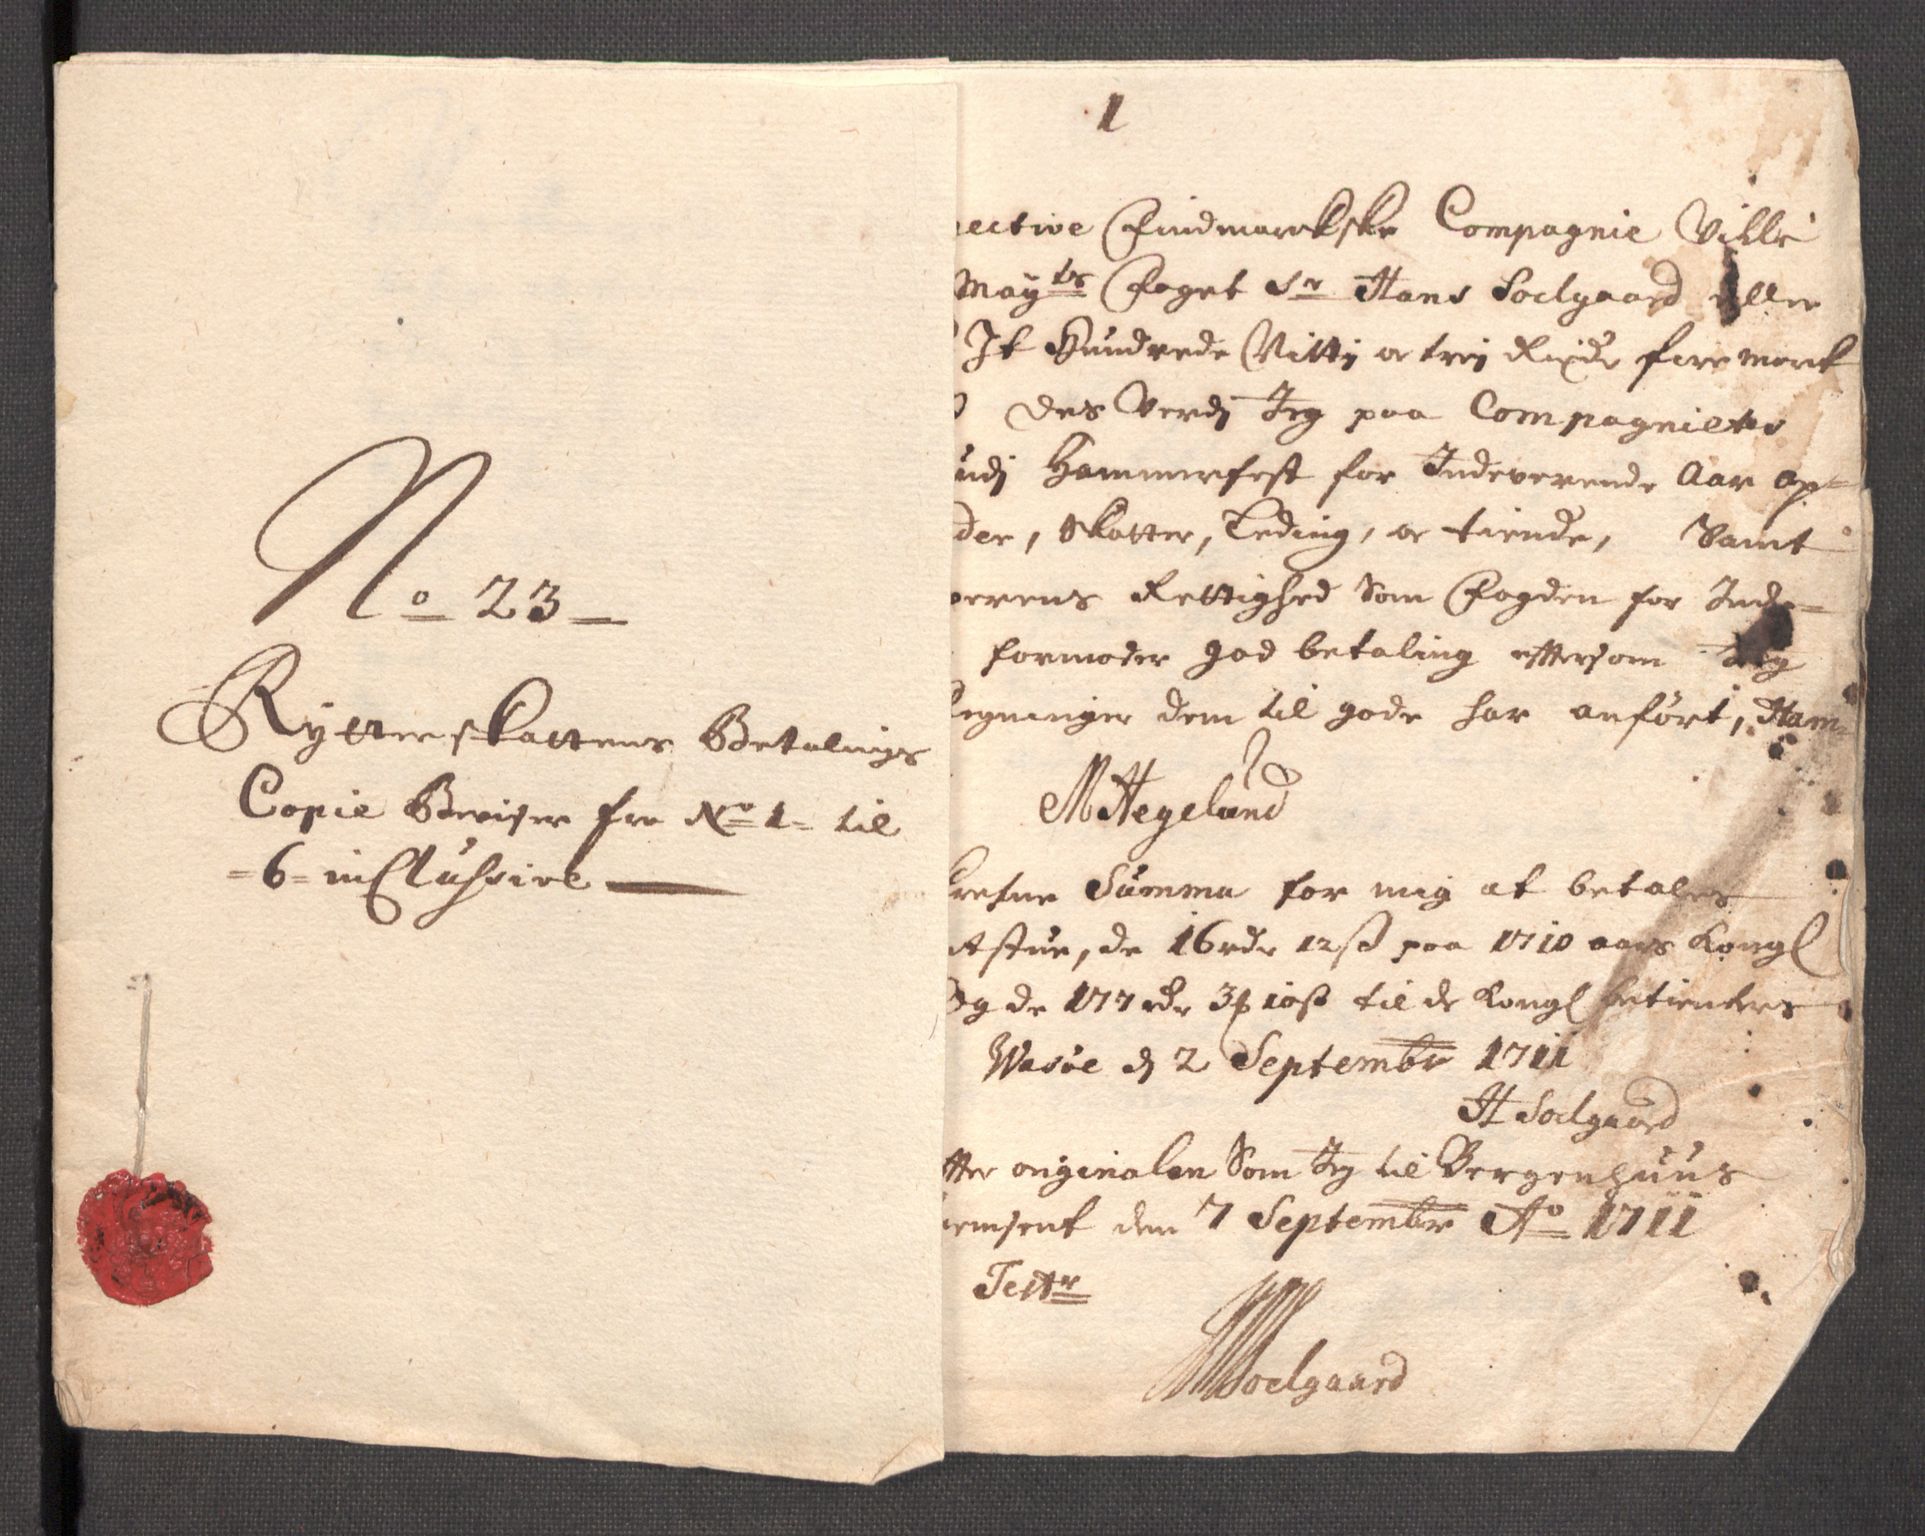 No 23
Rytterskattens Betalings
Copie Beviser fra No 1 til
6 inclusive
1
ective Findmarckske Compagnie Ville
Mayts Foget Sr Hans Soelgaard eller
It Hundrede Nitti oc trej Rixdr fire mark
des Verdj Jeg paa Compagnietes
udj Hammerfest for Indeverende Aar op-
der, Skatter, Leding, oc tiende, Samt
erens Rettighed Som Fogden for Inde-
formoder god betaling efftersom Jeg
egninger dem til gode har anført, Ham-
M Hegelund
krefne Summa for mig at betales
stue, de 16 rdr 12 ß paa 1710 aars Kongl
Og de 177 rdr 3 10ß til de Kongl betienters
Wasøe dj 2 Septembr 1711
H Soelgaard
ffter originalen Som Jeg til Bergenhuus
emsent den 7 Septembr Ao 1711
Tester
Soelgaard